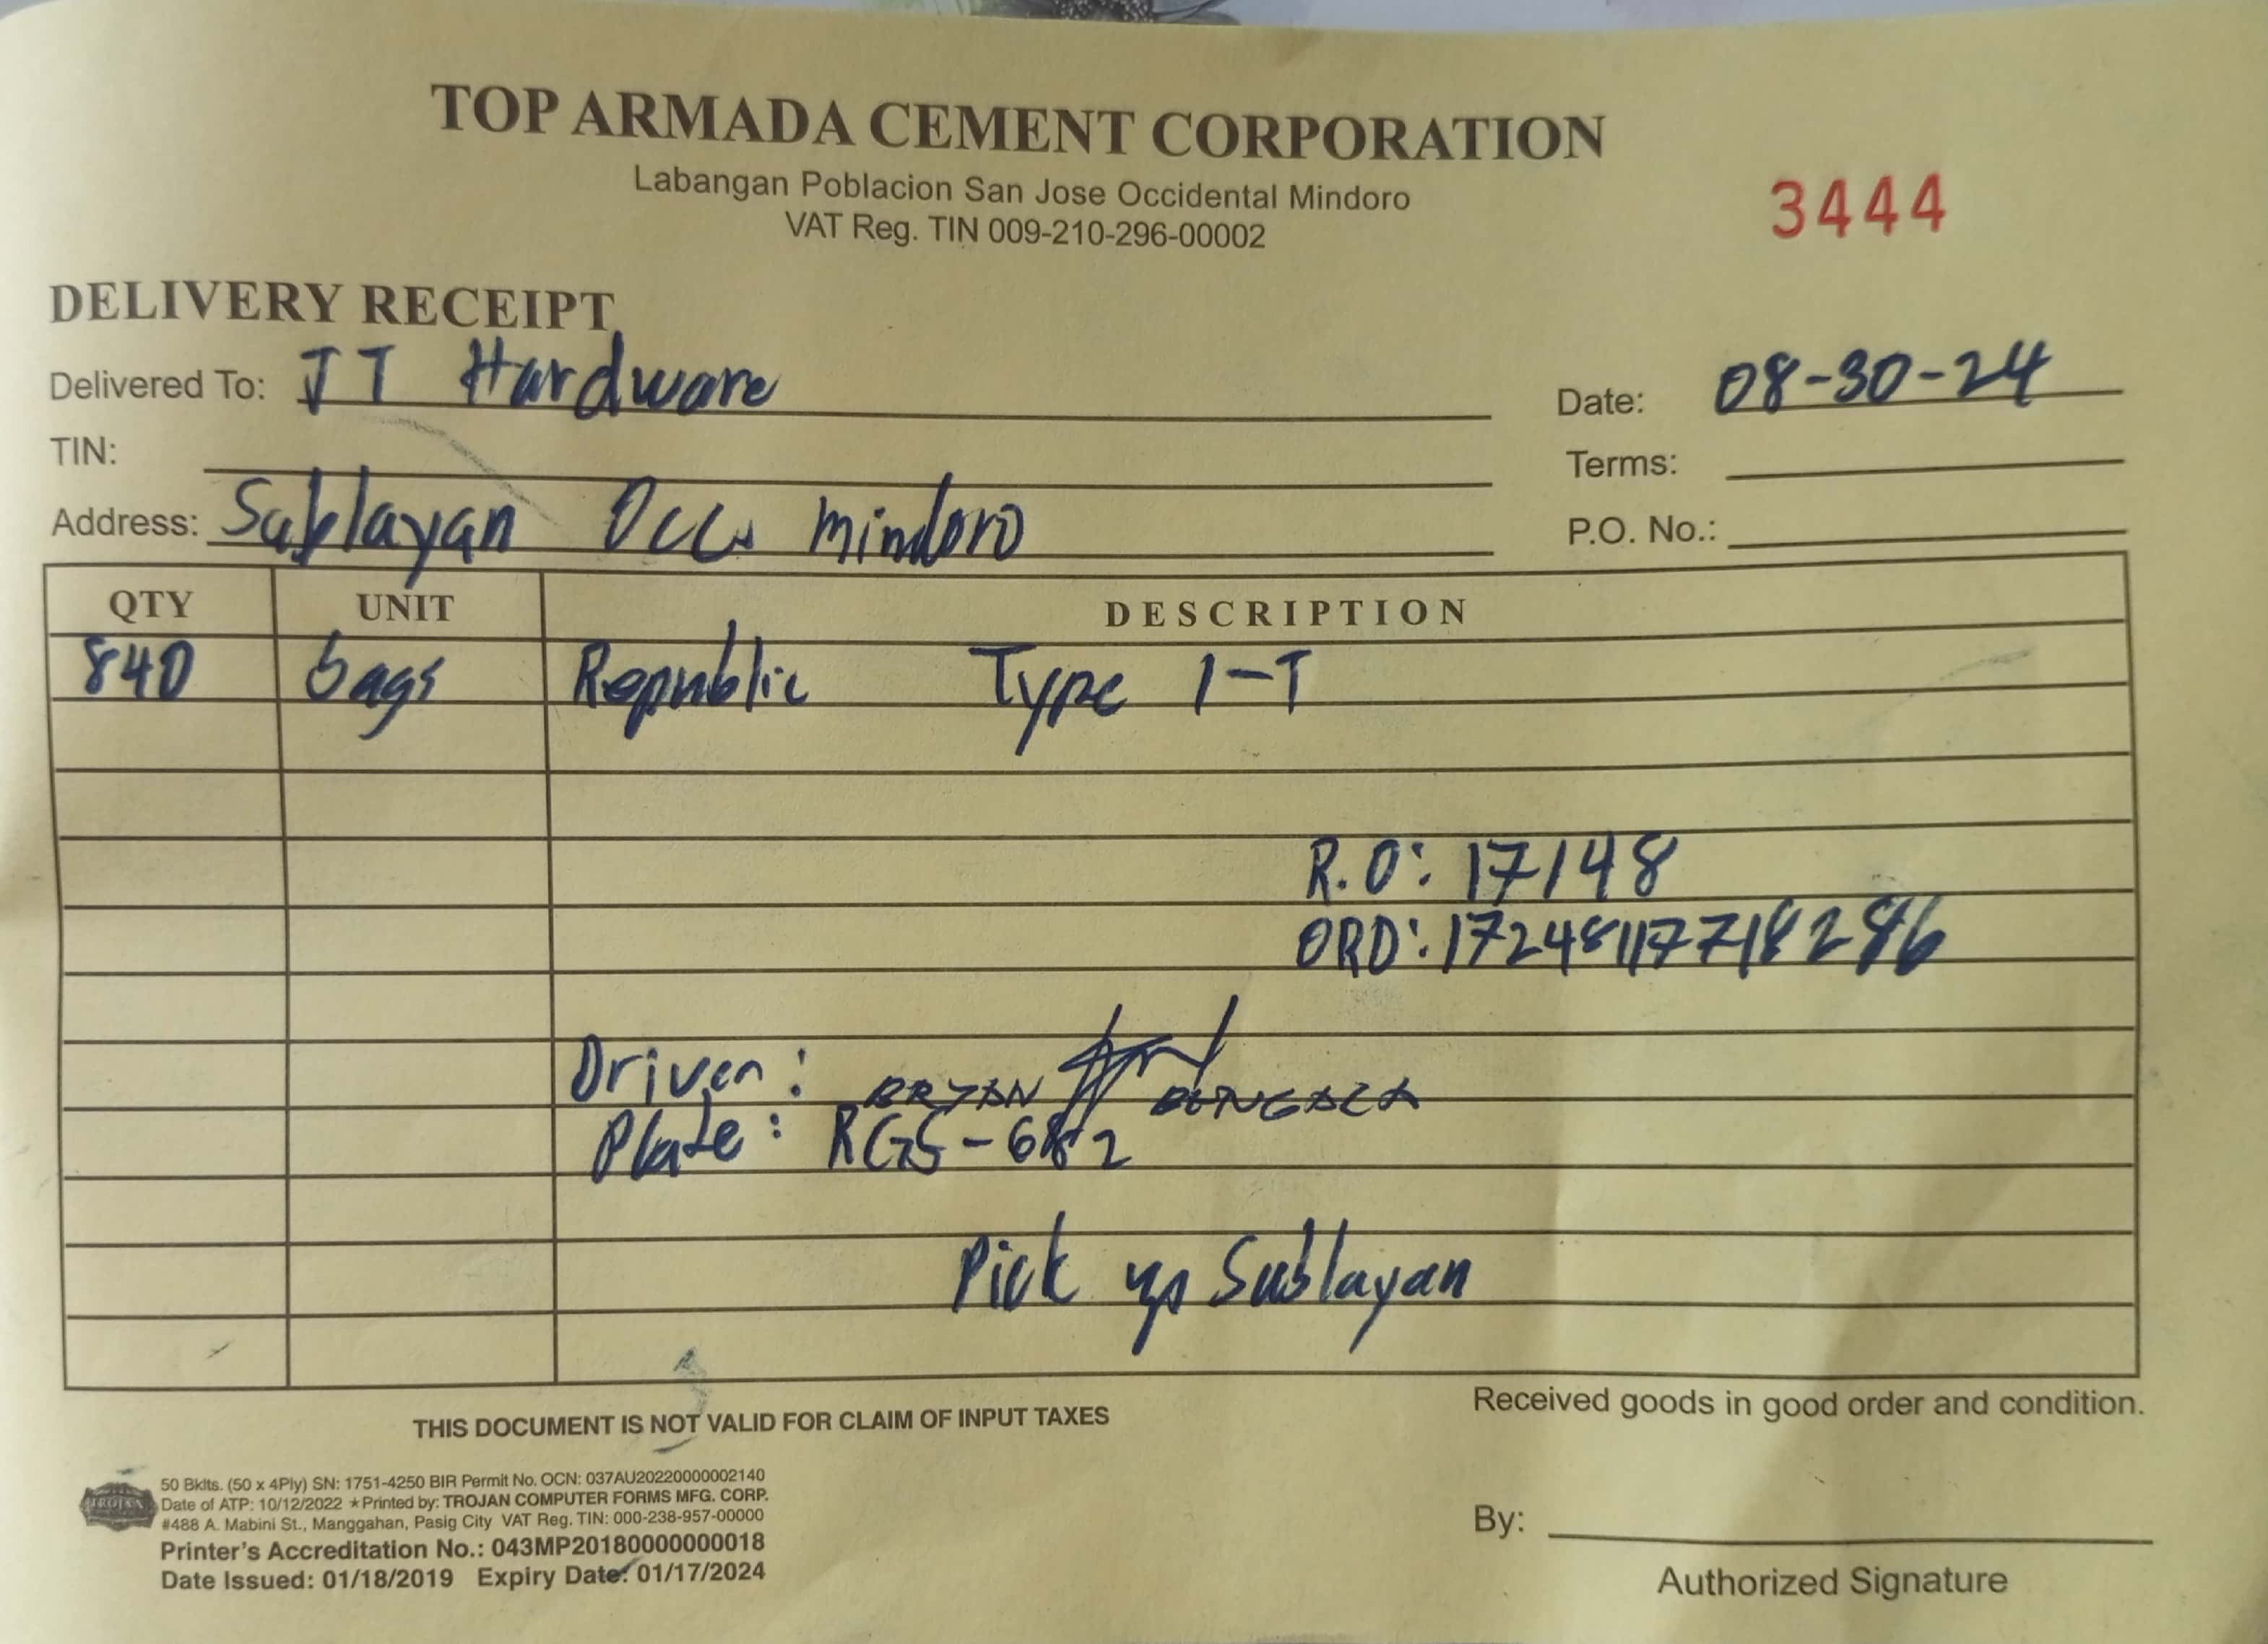 TOP ARMADA CEMENT CORPORATION
Labangan Poblacion San Jose Occidental Mindoro
VAT Reg. TIN 009-210-296-00002
3444
DELIVERY RECEIPT
Delivered To: JT Hardware
Date: 08-30-24
TIN:
Terms:
Address: Sablayan Occ. Mindoro
P.O. No.:
QTY UNIT DESCRIPTION
840 bags Republic Type 1-T
R.O: 17148
ORD: 17248117718286
Driver: BRYAN
Plate: RGS-682
Pick up Sablayan
THIS DOCUMENT IS NOT VALID FOR CLAIM OF INPUT TAXES
Received goods in good order and condition.
TROJAN
50 Bklts. (50 x 4Ply) SN: 1751-4250 BIR Permit No. OCN: 037AU20220000002140
Date of ATP: 10/12/2022 ★Printed by: TROJAN COMPUTER FORMS MFG. CORP.
#488 A. Mabini St., Manggahan, Pasig City VAT Reg. TIN: 000-238-957-00000
Printer's Accreditation No.: 043MP20180000000018
Date Issued: 01/18/2019 Expiry Date: 01/17/2024
By:
Authorized Signature